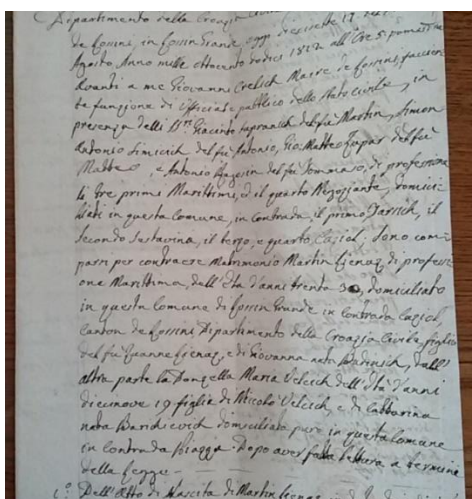 Dipartimento della Croazia
de Lossini, in Lossin Grande, oggi diecisette 17 del
Agosto, Anno mille ottocento dodici 1812 all'Ore 5 pomeri
Avanti a me Giovanni Crelich Maire de Lossini, facien
te funzione di Officiale pubblico dello Stato civile, in
presenza delli Giacinto del fu Martin, Simon
Antonio Simicich del fu Antonio, Gio: Matteo Zupar del fu
Matteo, e Antonio Ragusin del fu Tommaso, di professione
li tre primi Marittimi, ed il quarto Negoziante, domici
liati in questa Comune, in contrada, il primo il
secondo il terzo, e quarto Cagiol, sono com
parsi per contraere Matrimonio Martin di professi
one Marittimo, dell'età d'anni trenta 30, domiciliato
in questa Comune di Lossin Grande in contrada Cagiol
Canton de Lossini Dipartimento della Croazia Civile, figlio
del fu e di Giovanna nata dall'
altra parte la Donzella Maria Velcich dell'età d'anni
diecinove 19 figlia di Nicolò Velcich, e di Cattarina
nata domiciliata pure in questa Comune
in contrada Biaggi. Dopo aver fatta lettura a termine
della Legge -
Dell'Atto di Nascita di Martin